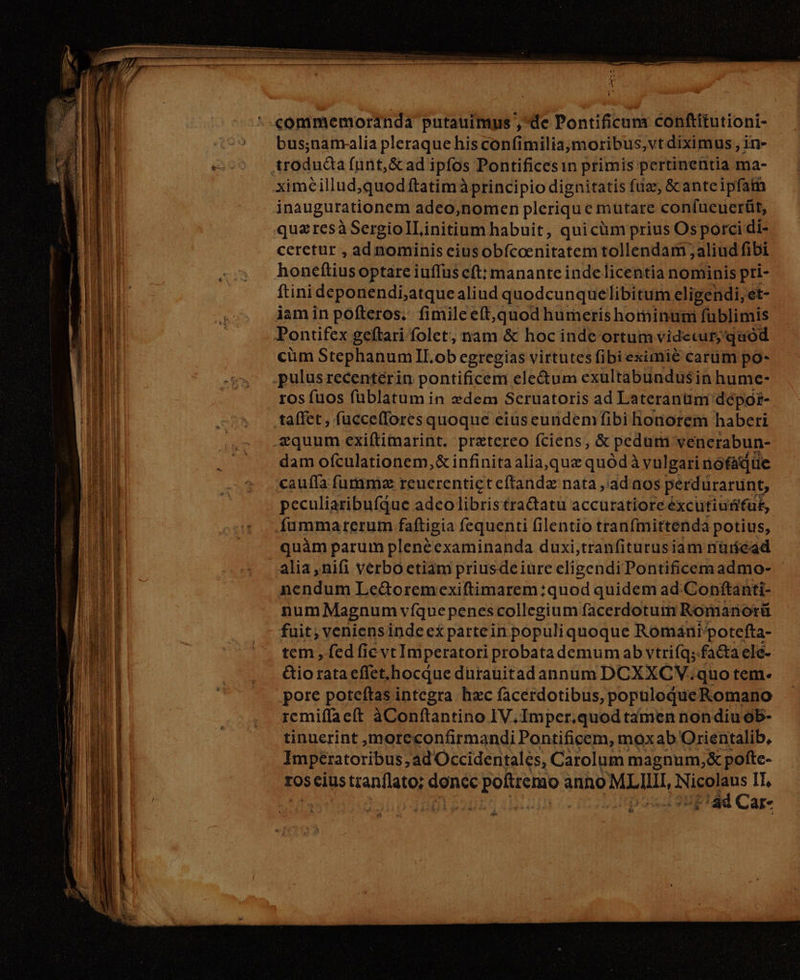 commemoranda putauimus, de Pontificum conſtitutioni-
bus;nam alia pleraque his conſimilia,moribus,vt diximus, in-
troducta ſunt,& ad ipſos Pontifices in primis pertinentia ma-
ximè illud,quod ſtatim à principio dignitatis ſuæ, & ante ipſam
inaugurationem adeo,nomen plerique mutare conſueuerũt,
quæ res à Sergio II,initium habuit, qui cùm prius Os porci di-
ceretur , ad nominis eius obſcœnitatem tollendam ,aliud ſibi
honeſtius optare iuſſus eſt: manante inde licentia nominis pri-
ſtini deponendi,atque aliud quodcunque libitum eligendi, et-
iam in poſteros. ſimile eſt,quod humeris hominum ſublimis
Pontifex geſtari ſolet, nam & hoc inde ortum videtur, quòd
cùm Stephanum II. ob egregias virtutes ſibi eximiè carum po-
pulus recenter in pontificem electum exultabundus in hume-
ros ſuos ſublatum in ædem Seruatoris ad Lateranùm depor-
taſſet, ſucceſſores quoque eius eundem ſibi honorem haberi
æquum exiſtimarint. prætereo ſciens, & pedum venerabun-
dam oſculationem,& infinita alia,quæ quòd à vulgari notaque
cauſſa ſummæ reuerentiæ teſtandæ nata , ad nos perdurarunt,
peculiaribuſque adeo libris tractatu accuratiore excutiuntur,
ſumma rerum faſtigia ſequenti ſilentio tranſmittenda potius,
quàm parum plenè examinanda duxi,tranſiturus iam nunc ad
alia ,niſi verbo etiam prius de iure eligendi Pontificem admo-
nendum Lectorem exiſtimarem : quod quidem ad Conſtanti-
num Magnum vſque penes collegium ſacerdotum Romanorũ
fuit; veniens inde ex parte in populi quoque Romani poteſta-
tem , ſed ſic vt Imperatori probata demum ab vtriſq; facta ele-
ctio rata eſſet,hocque durauit ad annum DCXXCV. quo tem-
pore poteſtas integra hæc ſacerdotibus, populoque Romano
remiſſa eſt à Conſtantino IV. Imper. quod tamen non diu ob-
tinuerint ,more confirmandi Pontificem, mox ab Orientalib.
Imperatoribus, ad Occidentales, Carolum magnum,& poſte-
ros eius tranſlato; donec poſtremo anno MLIIII, Nicolaus II,
ad Car-